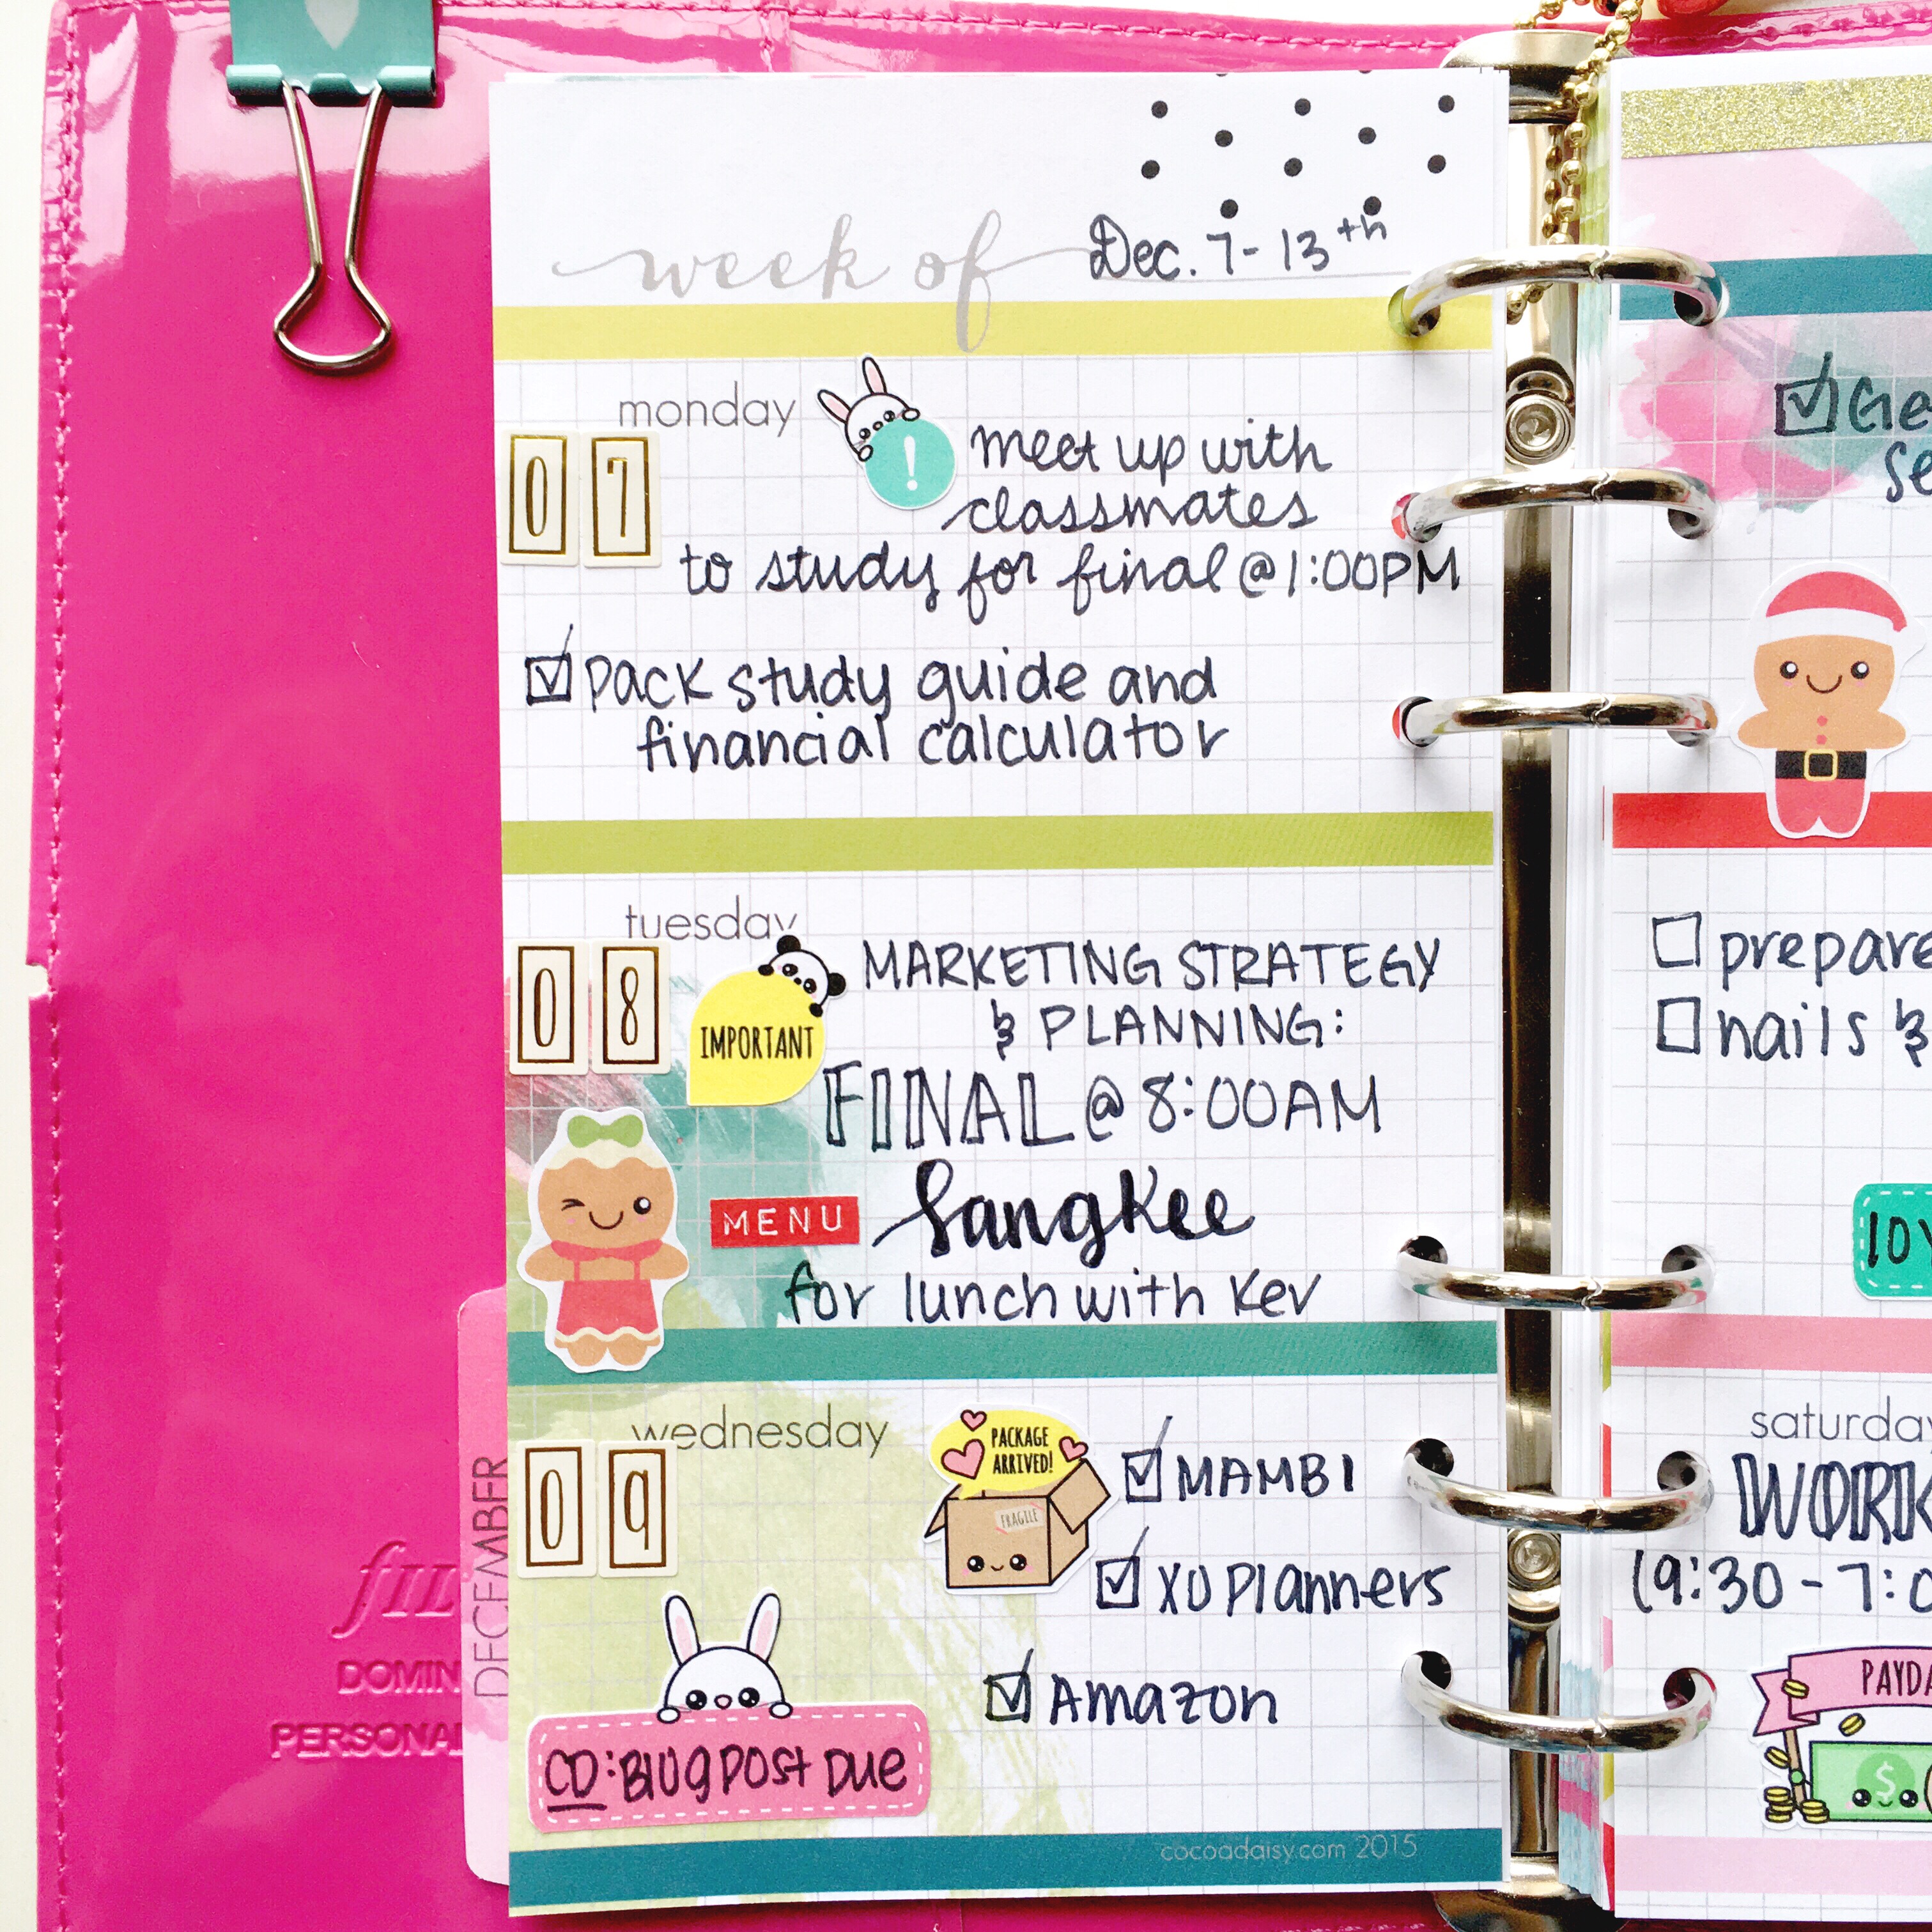 week of Dec. 7-13th
monday
07
!
meet up with
classmates
to study for final @ 1:00PM
pack study guide and
financial calculator
tuesday
08
IMPORTANT
MARKETING STRATEGY
& PLANNING:
FINAL @ 8:00AM
MENU
SangKee
for lunch with Kev
wednesday
09
PACKAGE
ARRIVED!
FRAGILE
MAMBI
XO Planners
Amazon
CD: Blog Post Due
cocoadaisy.com 2015
DECEMBER
PERSONAL
prepare
nails &
saturday
WORK
$